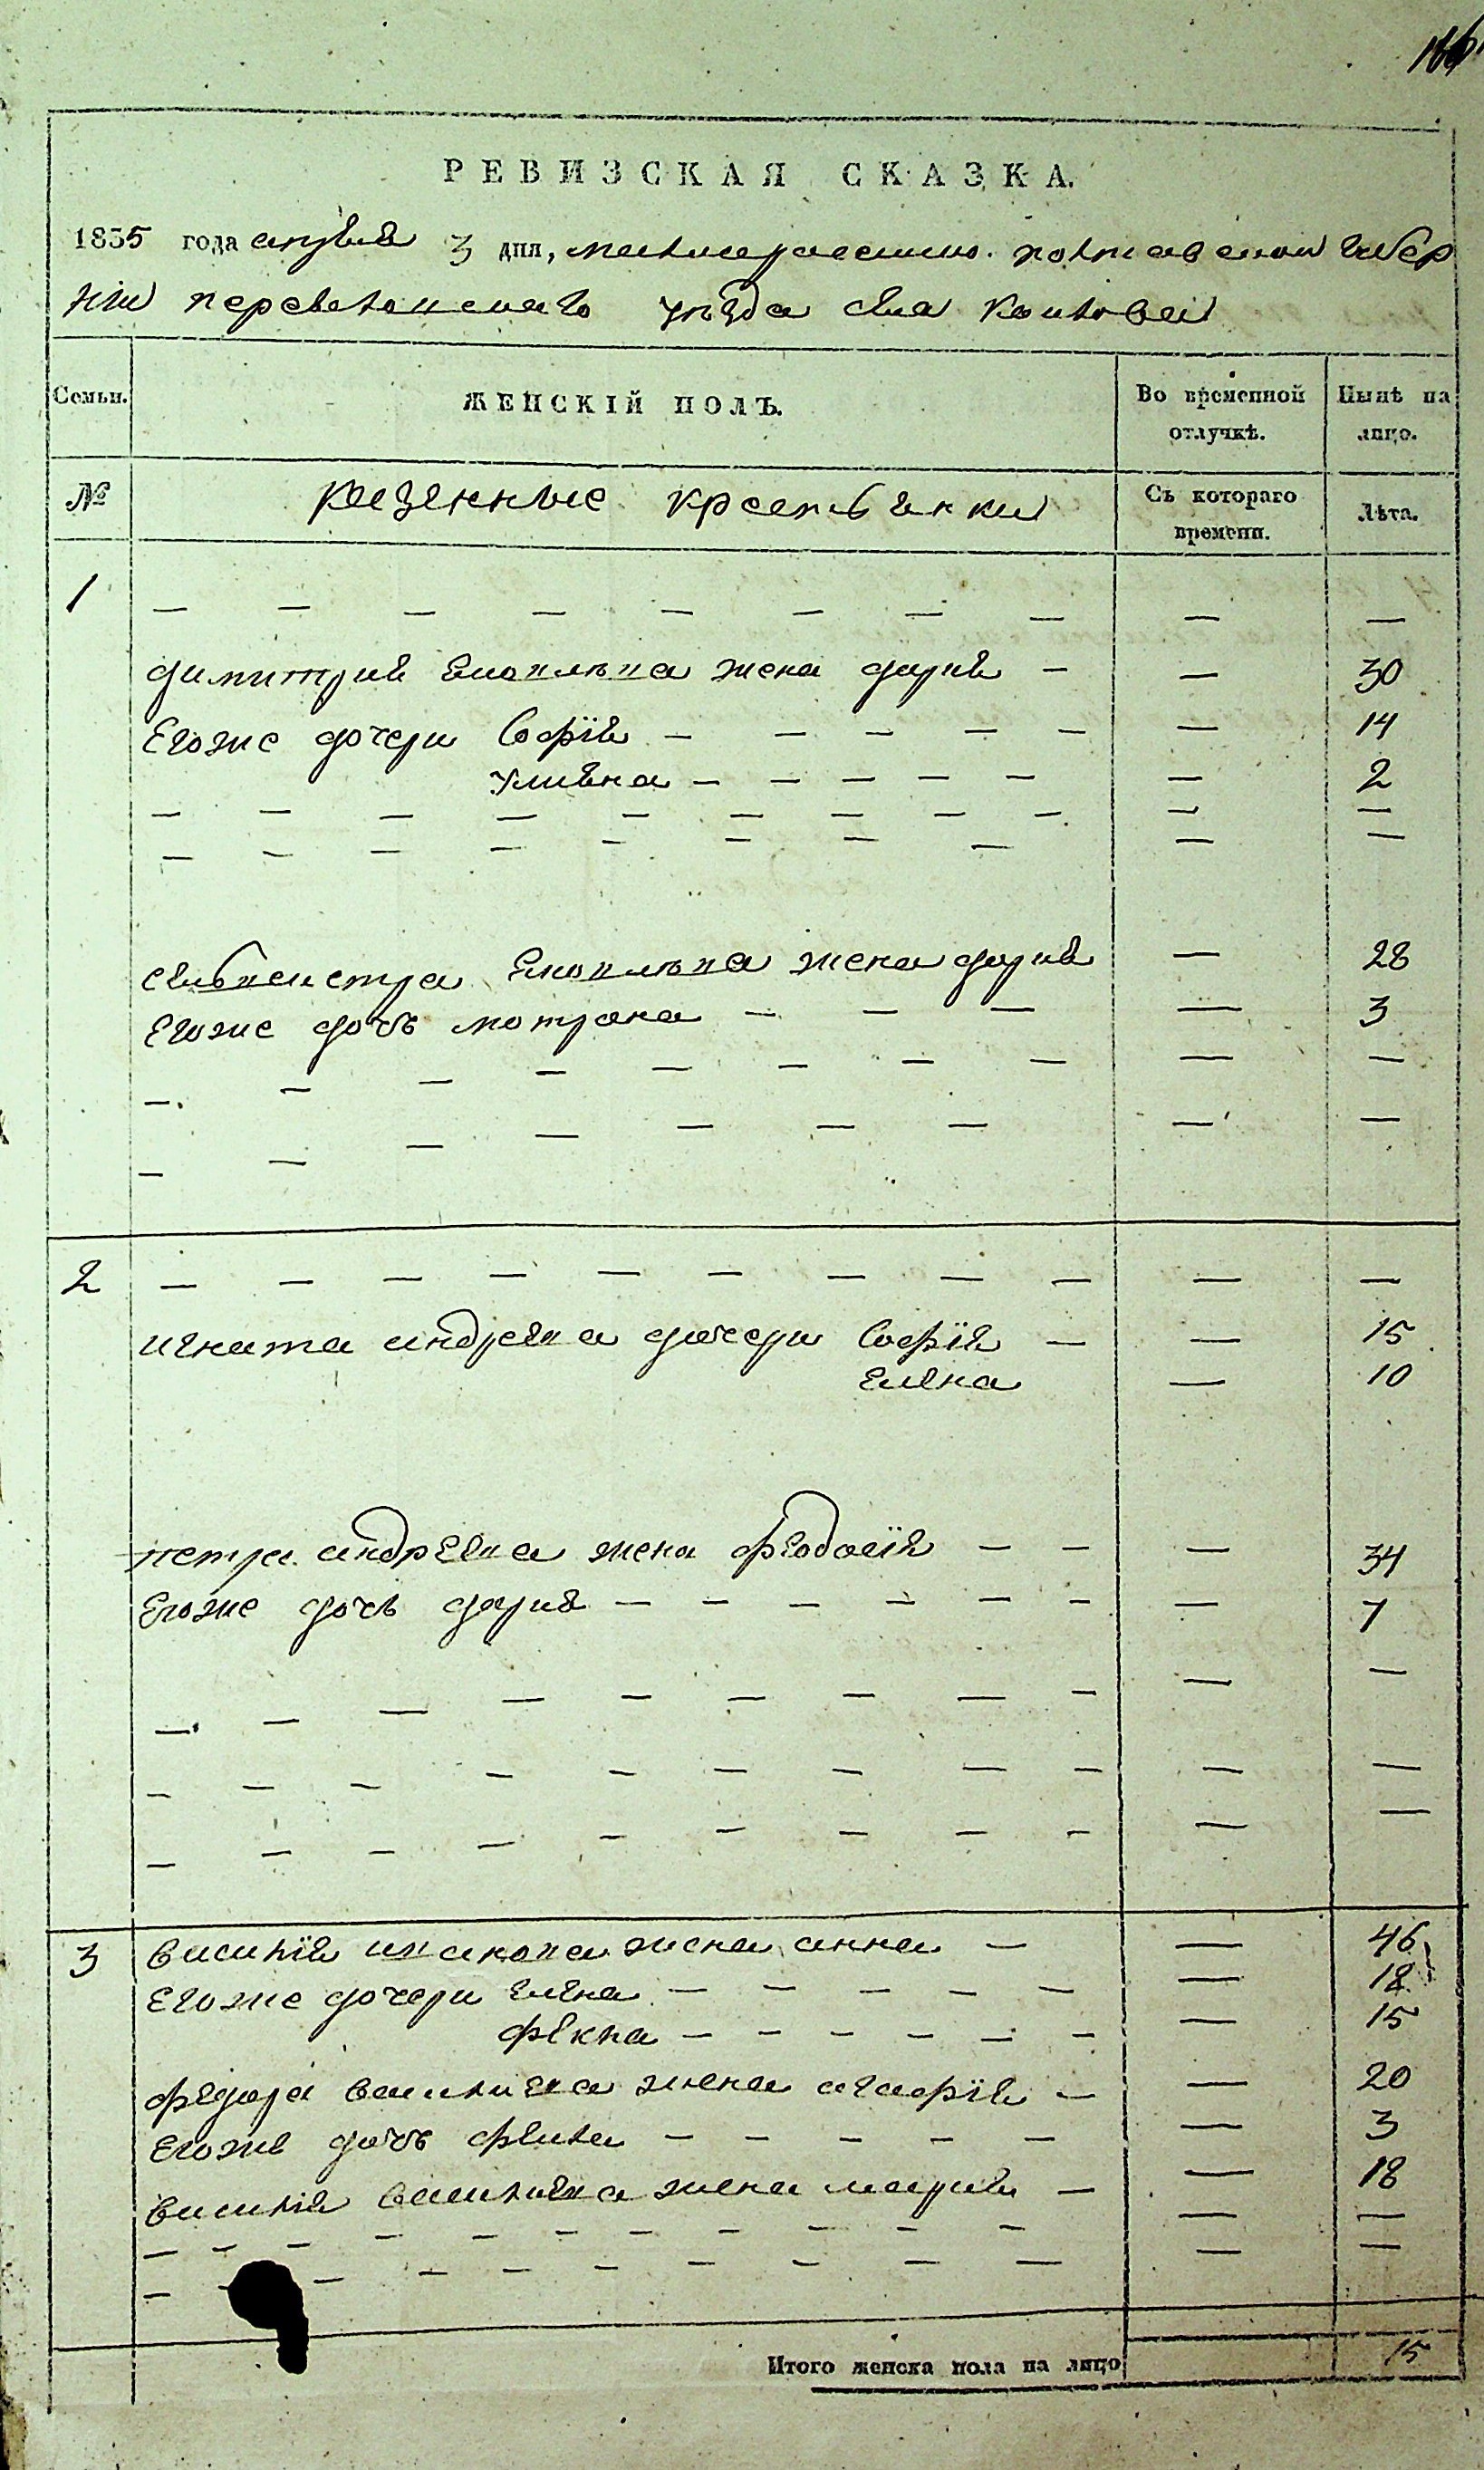 РЕВИЗСКАЯ СКАЗКА.
1835 года апреля 3 дня, Малороссийско. Полтавской Губер
нии Переволочанскаго уезда села
Семьи. ЖЕНСКІЙ ПОЛЪ. Во временной отлучкѣ. Нынѣ на лицо.
№ Казенные крестьянки Съ котораго времени. Лѣта.
1 — — — — — — — — — —
Димитрия жена Дария — — 30
Егоже дочери Софія — — — — — — 14
Улияна — — — — — — 2
— — — — — — — — — — —
— — — — — — — — — —
жена Дария — 28
Егоже дочь Мотрона — — — — 3
— — — — — — — — — —
— — — — — — — — —
2 — — — — — — — — — — —
Игната Андреева дочери Софія — — 15
Елена — 10
Петра Андреева жена Феодосія — — — 34
Егоже дочь Дария — — — — — — 7
— — — — — — — — — — —
— — — — — — — — — — —
— — — — — — — — — — —
3 Василія жена Анна — — 46
Егоже дочери Елена — — — — — — 18
Фекла — — — — — — — 15
Федора Василиева жена Агафія — — 20
Егоже дочь — — — — — — 3
Василія Василиева жена Мария — — 18
— — — — — — — — — — —
— — — — — — — — — —
Итого женска пола на лицо 15